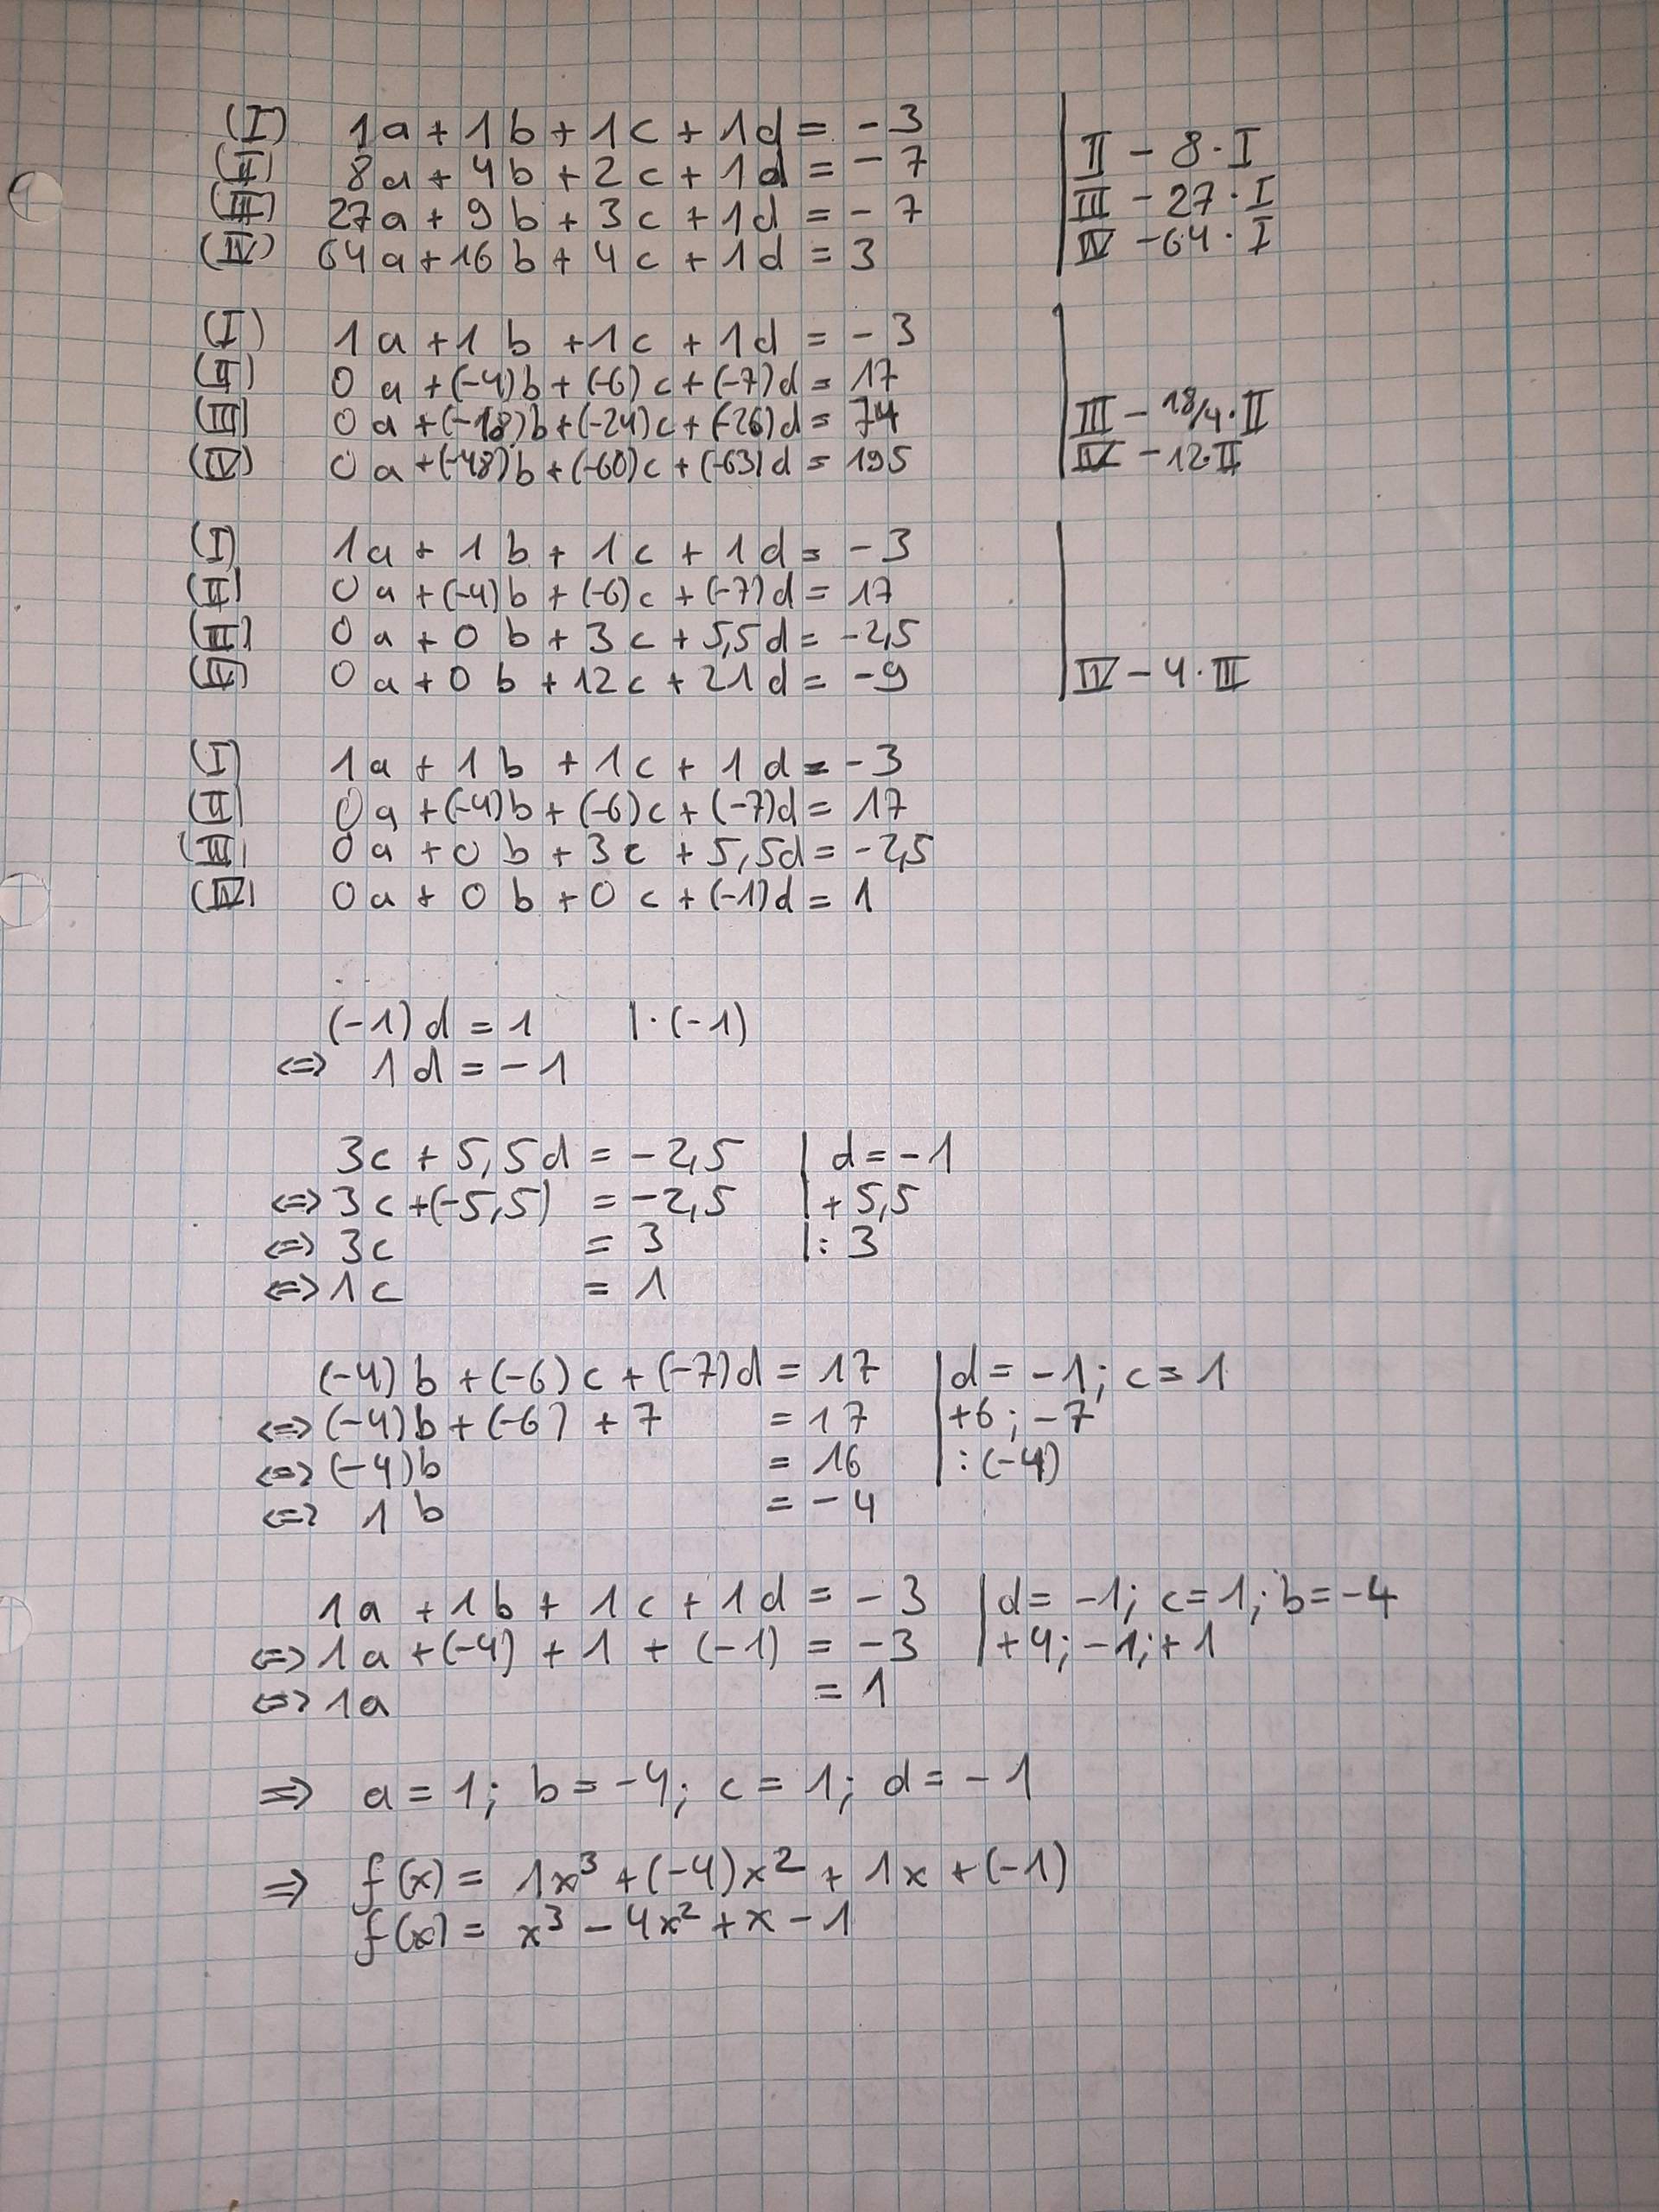 (I) 1a + 1b + 1c + 1d = -3
(II) 8a + 4b + 2c + 1d = -7 | II - 8·I
(III) 27a + 9b + 3c + 1d = -7 | III - 27·I
(IV) 64a + 16b + 4c + 1d = 3 | IV - 64·I
(I) 1a + 1b + 1c + 1d = -3
(II) 0a + (-4)b + (-6)c + (-7)d = 17
(III) 0a + (-18)b + (-24)c + (-26)d = 74 | III - 18/4·II
(IV) 0a + (-48)b + (-60)c + (-63)d = 195 | IV - 12·II
(I) 1a + 1b + 1c + 1d = -3
(II) 0a + (-4)b + (-6)c + (-7)d = 17
(III) 0a + 0b + 3c + 5,5d = -2,5
(IV) 0a + 0b + 12c + 21d = -9 | IV - 4·III
(I) 1a + 1b + 1c + 1d = -3
(II) 0a + (-4)b + (-6)c + (-7)d = 17
(III) 0a + 0b + 3c + 5,5d = -2,5
(IV) 0a + 0b + 0c + (-1)d = 1
(-1)d = 1 | ·(-1)
⇔ 1d = -1
3c + 5,5d = -2,5 | d = -1
⇔ 3c + (-5,5) = -2,5 | + 5,5
⇔ 3c = 3 | : 3
⇔ 1c = 1
(-4)b + (-6)c + (-7)d = 17 | d = -1; c = 1
⇔ (-4)b + (-6) + 7 = 17 | +6; -7
⇔ (-4)b = 16 | : (-4)
⇔ 1b = -4
1a + 1b + 1c + 1d = -3 | d = -1; c = 1; b = -4
⇔ 1a + (-4) + 1 + (-1) = -3 | +4; -1; +1
⇔ 1a = 1
⇒ a = 1; b = -4; c = 1; d = -1
⇒ f(x) = 1x³ + (-4)x² + 1x + (-1)
f(x) = x³ - 4x² + x - 1